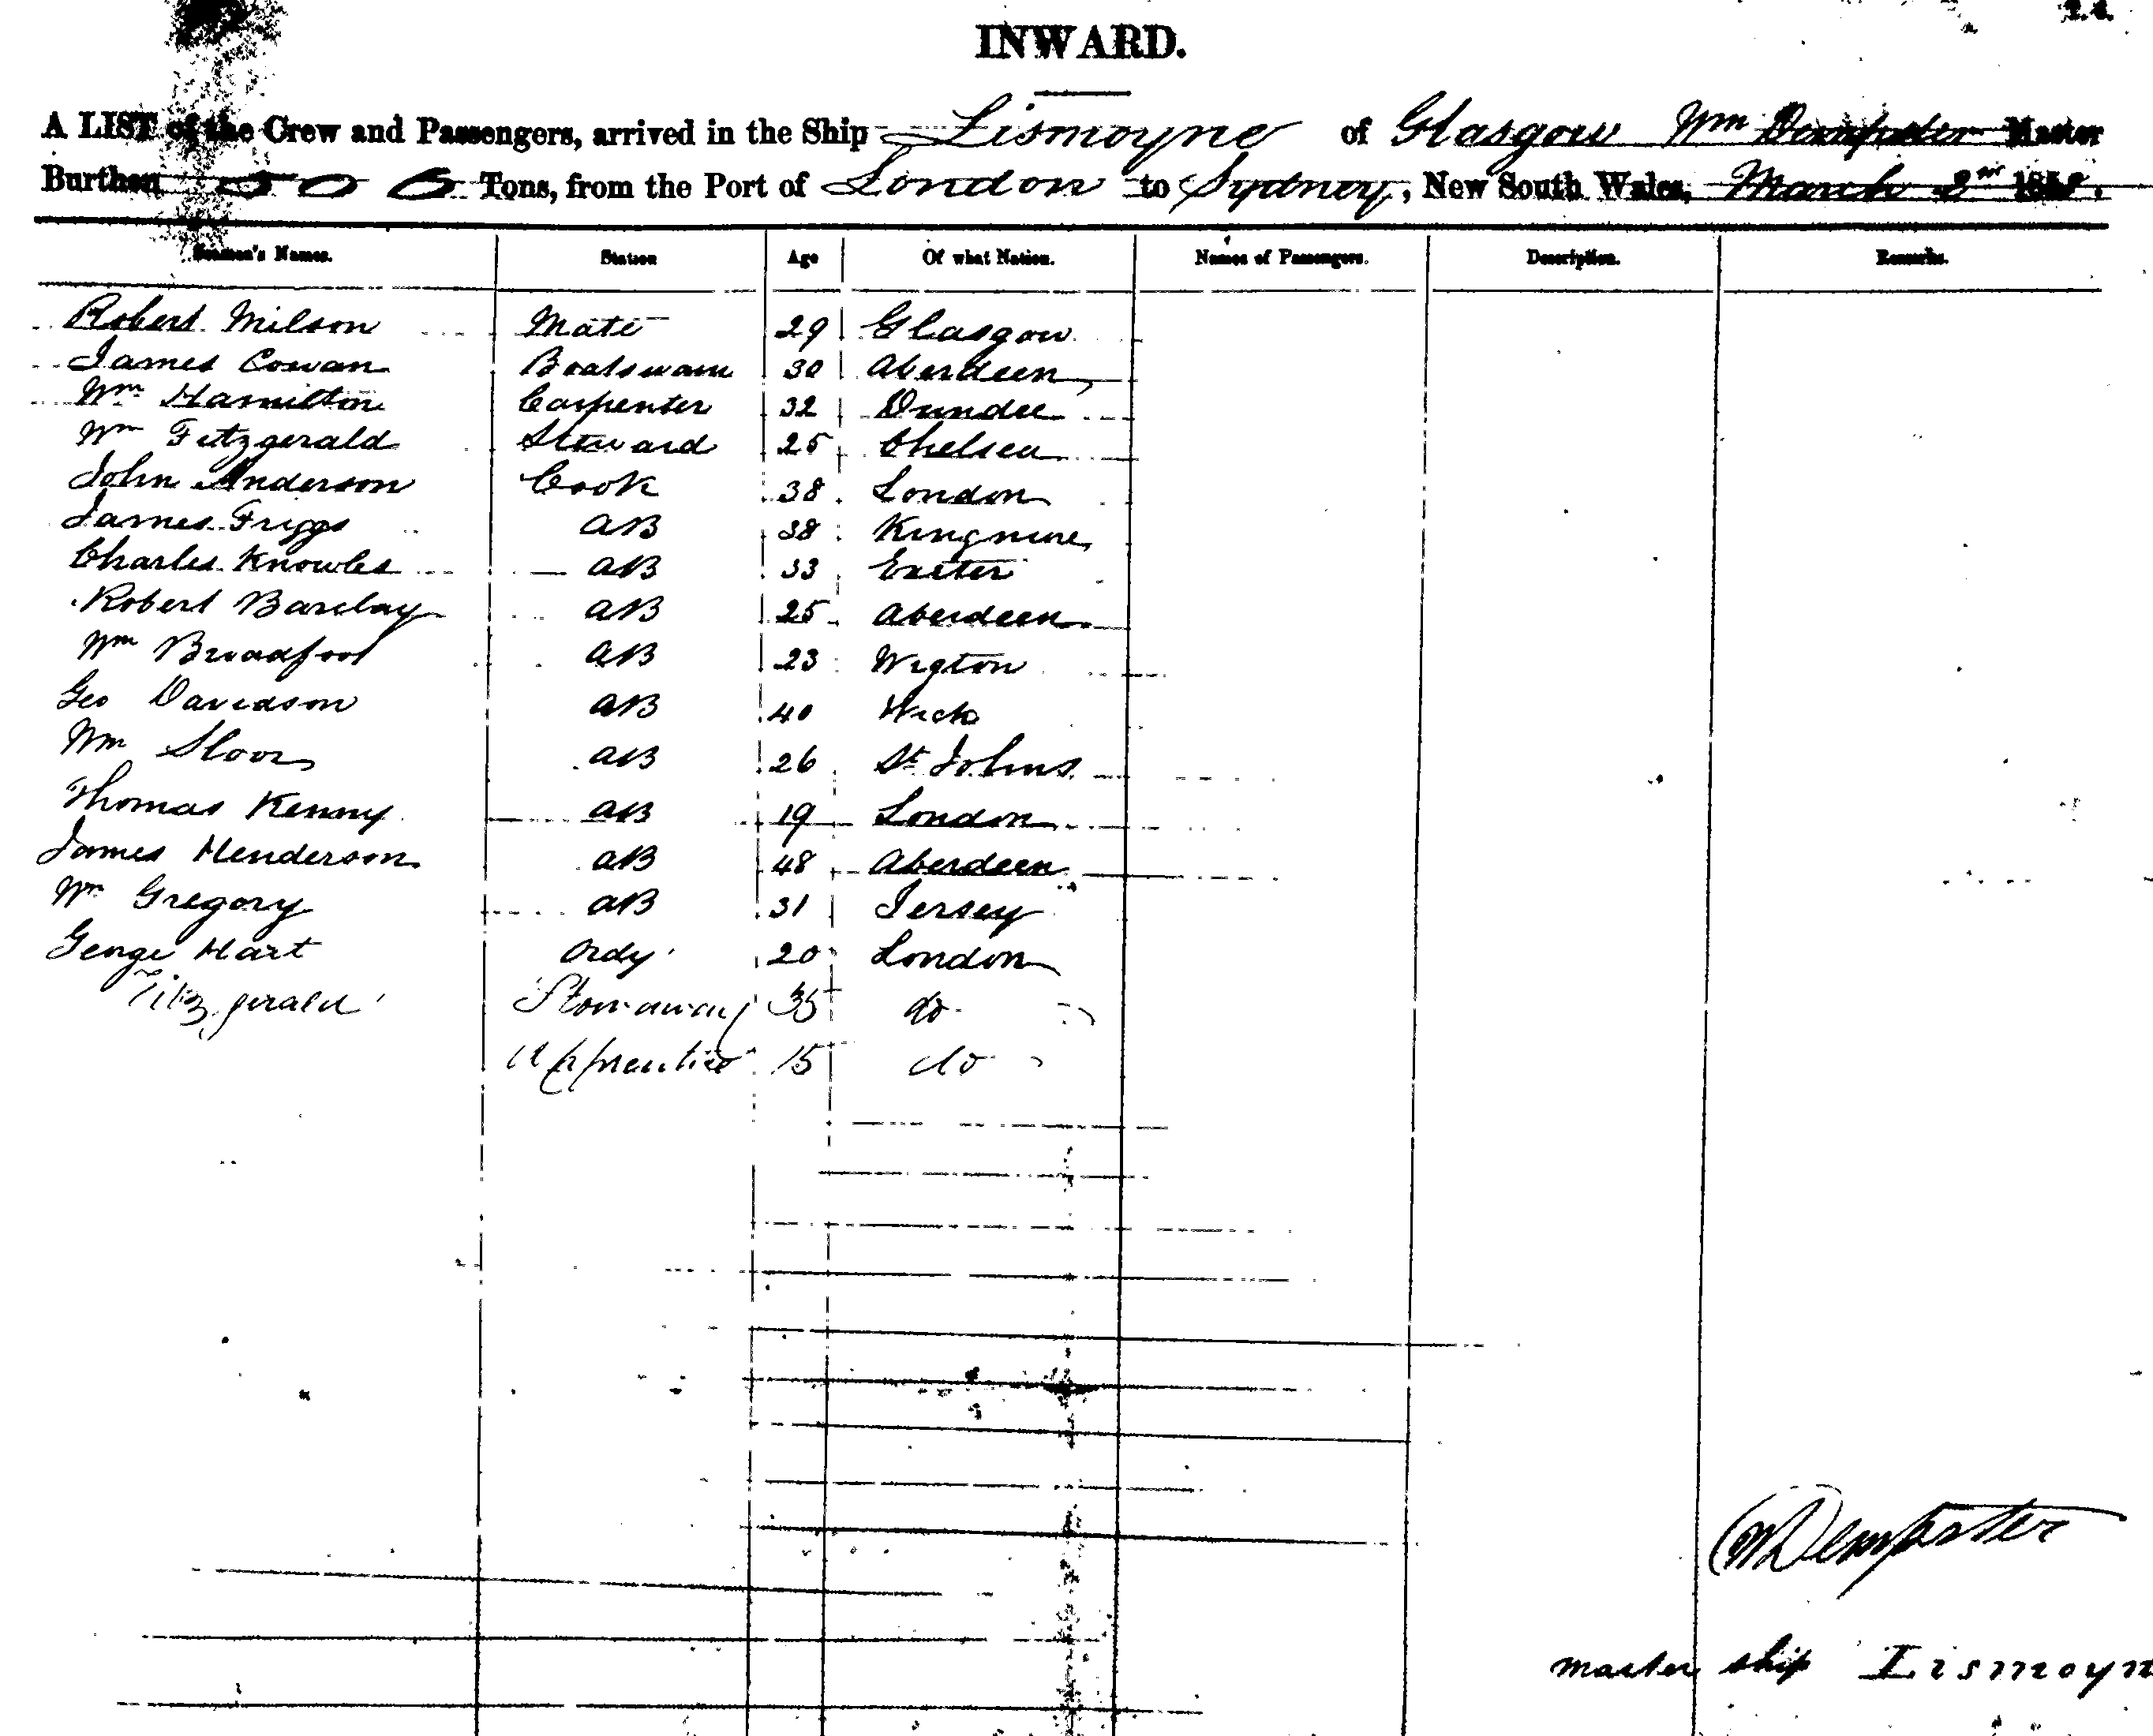 INWARD.
A LIST of the Crew and Passengers, arrived in the Ship Lismoyne of Glasgow Wm Dempster Master
Burthen 506 Tons, from the Port of London to Sydney, New South Wales, March 2nd 1858.
Seamen's Names. Station Age Of what Nation. Names of Passengers. Description. Remarks.
Robert Milson Mate 29 Glasgow
James Cowan Boatswain 30 Aberdeen
Wm Hamilton Carpenter 32 Dundee
Wm Fitzgerald Steward 25 Chelsea
John Anderson Cook 38 London
James Friggs AB 38 
Charles Knowles AB 33 Exeter
Robert Barclay AB 25 Aberdeen
Wm Broadfoot AB 23 Wigton
Geo Davidson AB 40 Wick
Wm AB 26 St Johns
Thomas Kenny AB 19 London
James Henderson AB 48 Aberdeen
Wm Gregory AB 31 Jersey
George Hart Ordy 20 London
Fitzgerald Stowaway 35 do
Apprentice 15 do
Wm Dempster
master ship Lismoyn